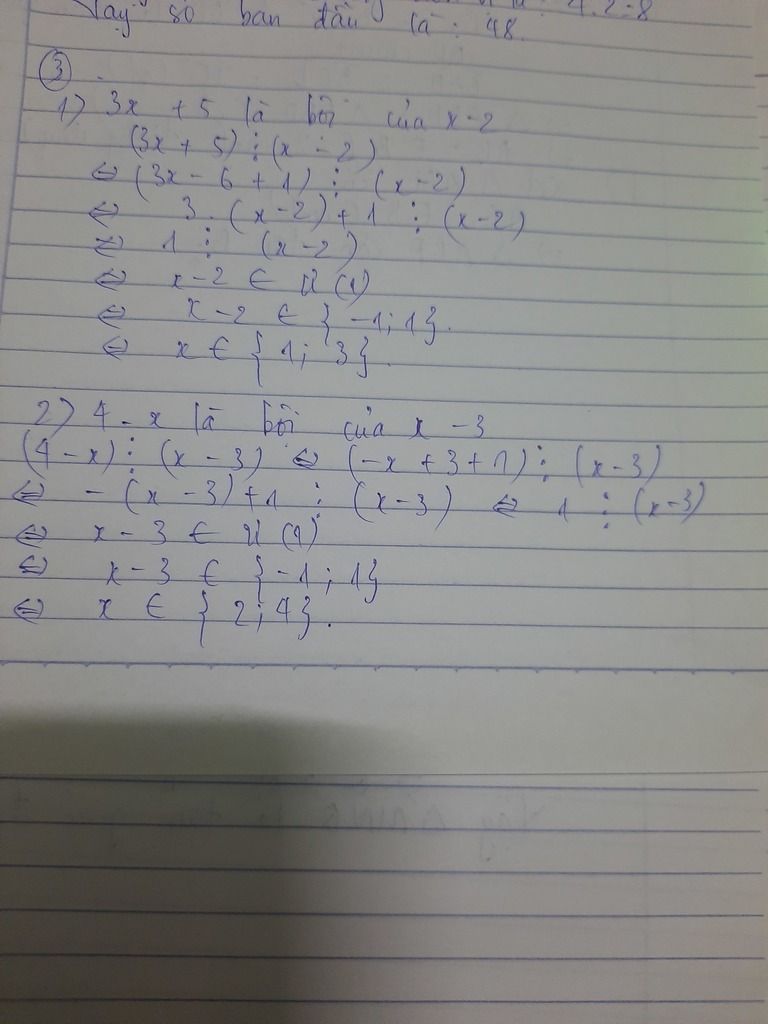 Vậy số ban đầu là: 48.
③.
1) 3x + 5 là bội của x-2
(3x + 5) ⋮ (x - 2)
⇔ (3x - 6 + 1) ⋮ (x-2)
⇔ 3. (x-2) + 1 ⋮ (x-2)
⇔ 1 ⋮ (x-2)
⇔ x-2 ∈ Ư(1)
⇔ x-2 ∈ {-1; 1}.
⇔ x ∈ {1; 3}.
2) 4 - x là bội của x - 3
(4-x) ⋮ (x-3) ⇔ (-x + 3 + 1) ⋮ (x-3)
⇔ - (x-3) + 1 ⋮ (x-3) ⇔ 1 ⋮ (x-3)
⇔ x-3 ∈ Ư(1)
⇔ x-3 ∈ {-1; 1}
⇔ x ∈ {2; 4}.